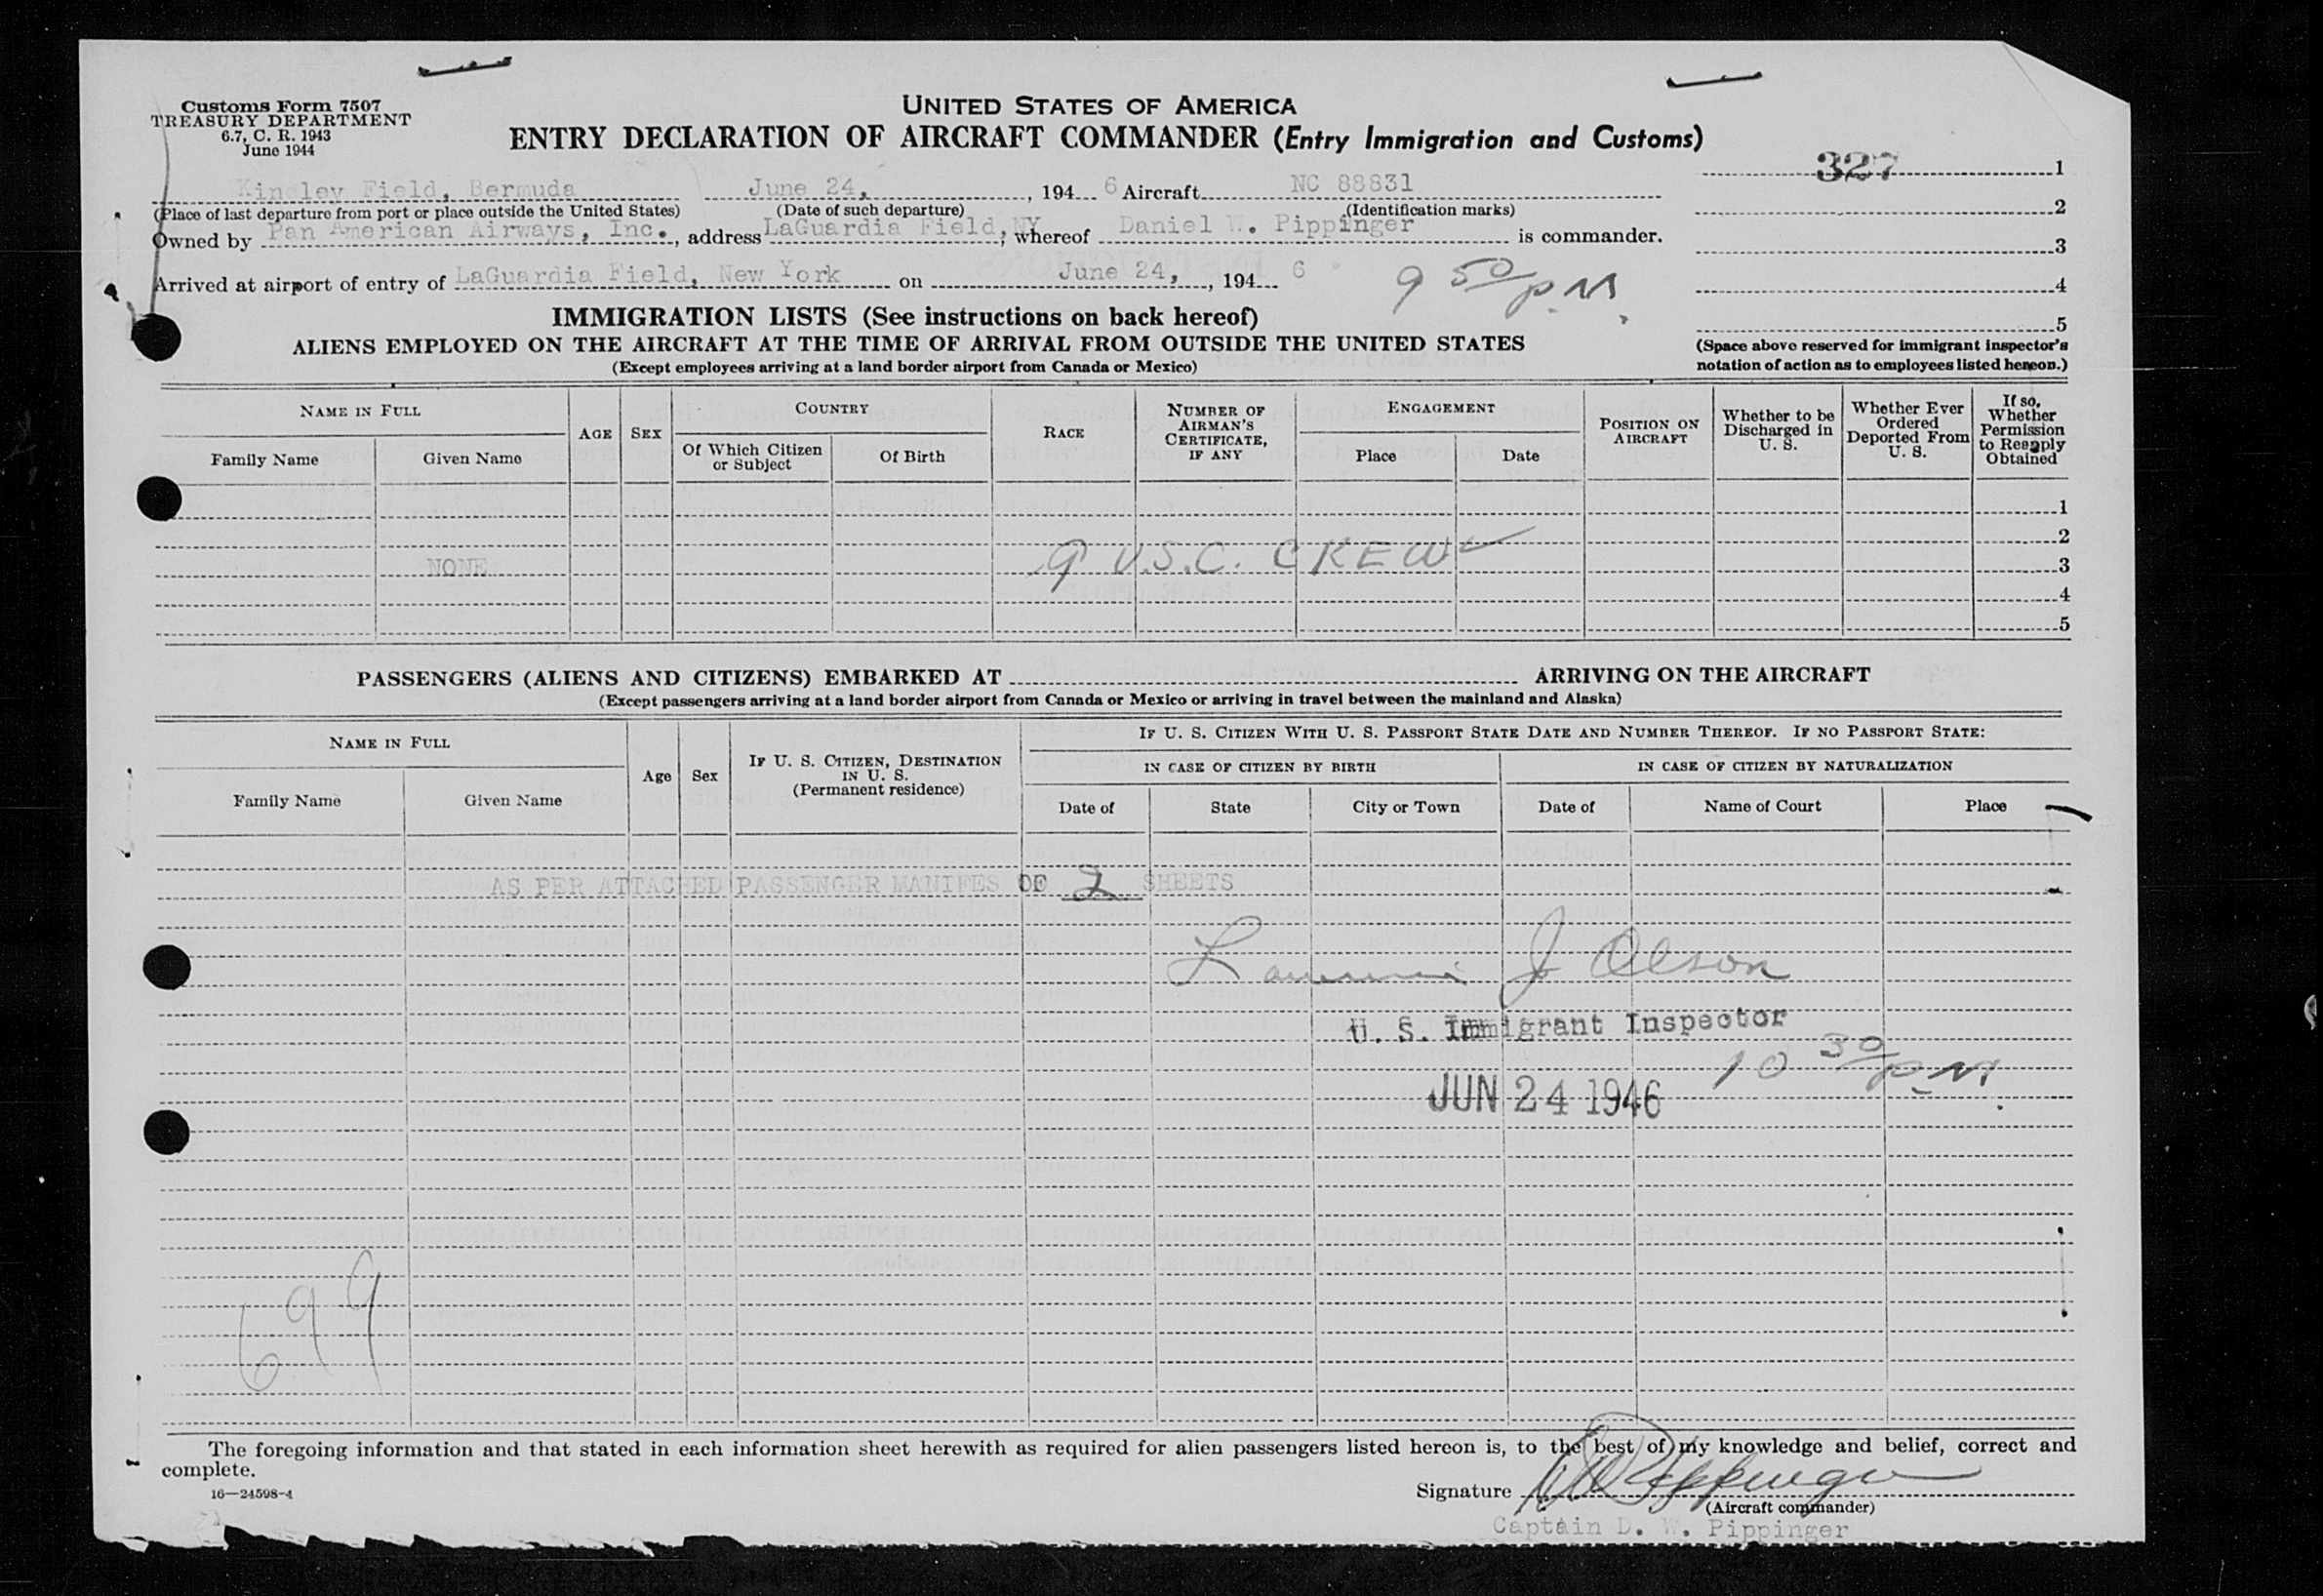 Customs Form 7507
TREASURY DEPARTMENT
6.7, C. R. 1943
June 1944
UNITED STATES OF AMERICA
ENTRY DECLARATION OF AIRCRAFT COMMANDER (Entry Immigration and Customs)
327 1
Kinsley Field, Bermuda June 24, , 194 6 Aircraft NC 88831
(Place of last departure from port or place outside the United States) (Date of such departure) (Identification marks)
2
Owned by Pan American Airways, Inc. , address LaGuardia Field, NY , whereof Daniel W. Pippinger is commander.
3
Arrived at airport of entry of LaGuardia Field, New York on June 24, , 194 6 9 50 P.M.
4
5
IMMIGRATION LISTS (See instructions on back hereof)
ALIENS EMPLOYED ON THE AIRCRAFT AT THE TIME OF ARRIVAL FROM OUTSIDE THE UNITED STATES
(Except employees arriving at a land border airport from Canada or Mexico)
(Space above reserved for immigrant inspector's
notation of action as to employees listed hereon.)
NAME IN FULL
Family Name Given Name
AGE SEX
COUNTRY
Of Which Citizen or Subject Of Birth
RACE
NUMBER OF AIRMAN'S CERTIFICATE, IF ANY
ENGAGEMENT
Place Date
POSITION ON AIRCRAFT
Whether to be Discharged in U. S.
Whether Ever Ordered Deported From U. S.
If so, Whether Permission to Reapply Obtained
1
2
NONE 9 U.S.C. CREW ✓ 3
4
5
PASSENGERS (ALIENS AND CITIZENS) EMBARKED AT ARRIVING ON THE AIRCRAFT
(Except passengers arriving at a land border airport from Canada or Mexico or arriving in travel between the mainland and Alaska)
NAME IN FULL
Family Name Given Name
Age Sex
IF U. S. CITIZEN, DESTINATION IN U. S. (Permanent residence)
IF U. S. CITIZEN WITH U. S. PASSPORT STATE DATE AND NUMBER THEREOF. IF NO PASSPORT STATE:
IN CASE OF CITIZEN BY BIRTH IN CASE OF CITIZEN BY NATURALIZATION
Date of State City or Town Date of Name of Court Place
AS PER ATTACHED PASSENGER MANIFES OF 2 SHEETS
J Olson
U. S. Immigrant Inspector
10 30 P.M.
JUN 24 1946
699
The foregoing information and that stated in each information sheet herewith as required for alien passengers listed hereon is, to the best of my knowledge and belief, correct and
complete.
16—24598-4
Signature D W Pippinger
(Aircraft commander)
Captain D. W. Pippinger